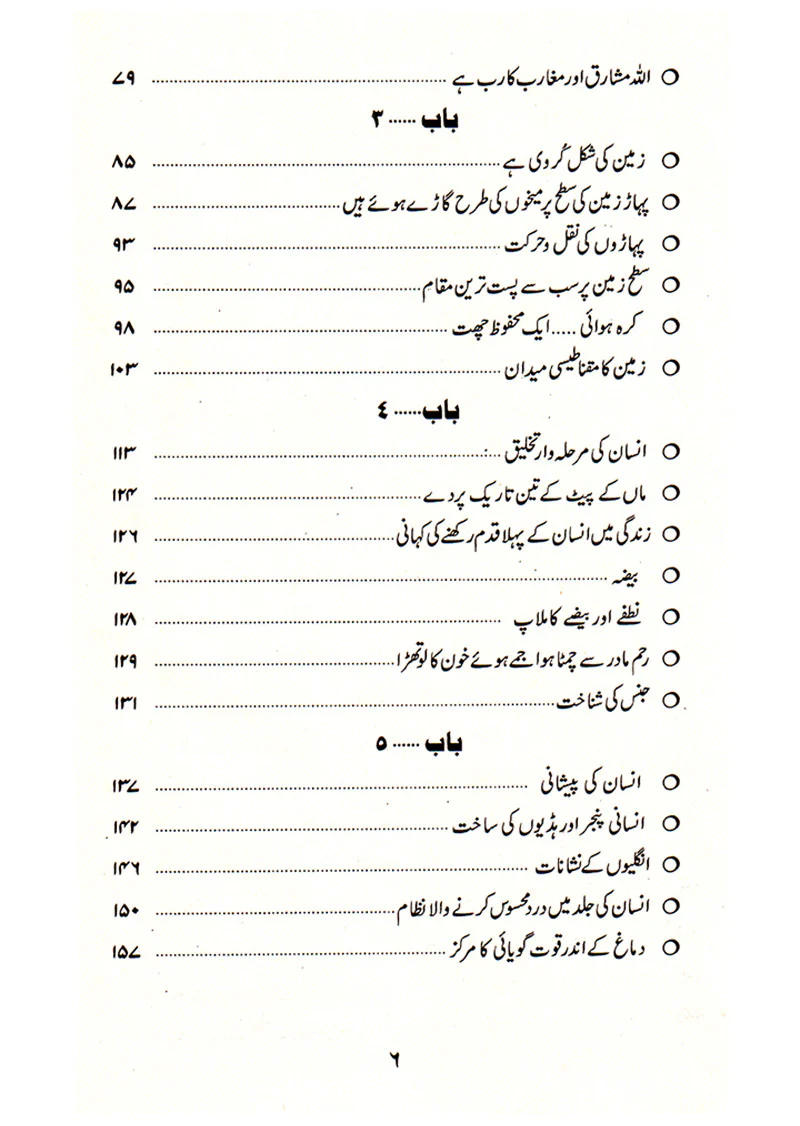 ○ اللہ مشارق اور مغارب کا رب ہے ........ ۷۹
باب ...... ۳
○ زمین کی شکل کُروی ہے ........ ۸۵
○ پہاڑ زمین کی سطح پر میخوں کی طرح گاڑے ہوئے ہیں ........ ۸۷
○ پہاڑوں کی نقل و حرکت ........ ۹۳
○ سطح زمین پر سب سے پست ترین مقام ........ ۹۵
○ کرہ ہوائی ..... ایک محفوظ چھت ........ ۹۸
○ زمین کا مقناطیسی میدان ........ ۱۰۳
باب ...... ٤
○ انسان کی مرحلہ وار تخلیق ........ ۱۱۳
○ ماں کے پیٹ کے تین تاریک پردے ........ ۱۲۴
○ زندگی میں انسان کے پہلا قدم رکھنے کی کہانی ........ ۱۲۶
○ بیضہ ........ ۱۲۷
○ نطفے اور بیضے کا ملاپ ........ ۱۲۸
○ رحم مادر سے چمٹا ہوا جمے ہوئے خون کا لوتھڑا ........ ۱۲۹
○ جنس کی شناخت ........ ۱۳۱
باب ...... ٥
○ انسان کی پیشانی ........ ۱۳۷
○ انسانی پنجر اور ہڈیوں کی ساخت ........ ۱۴۲
○ انگلیوں کے نشانات ........ ۱۴۶
○ انسان کی جلد میں درد محسوس کرنے والا نظام ........ ۱۵۰
○ دماغ کے اندر قوت گویائی کا مرکز ........ ۱۵۷
۶